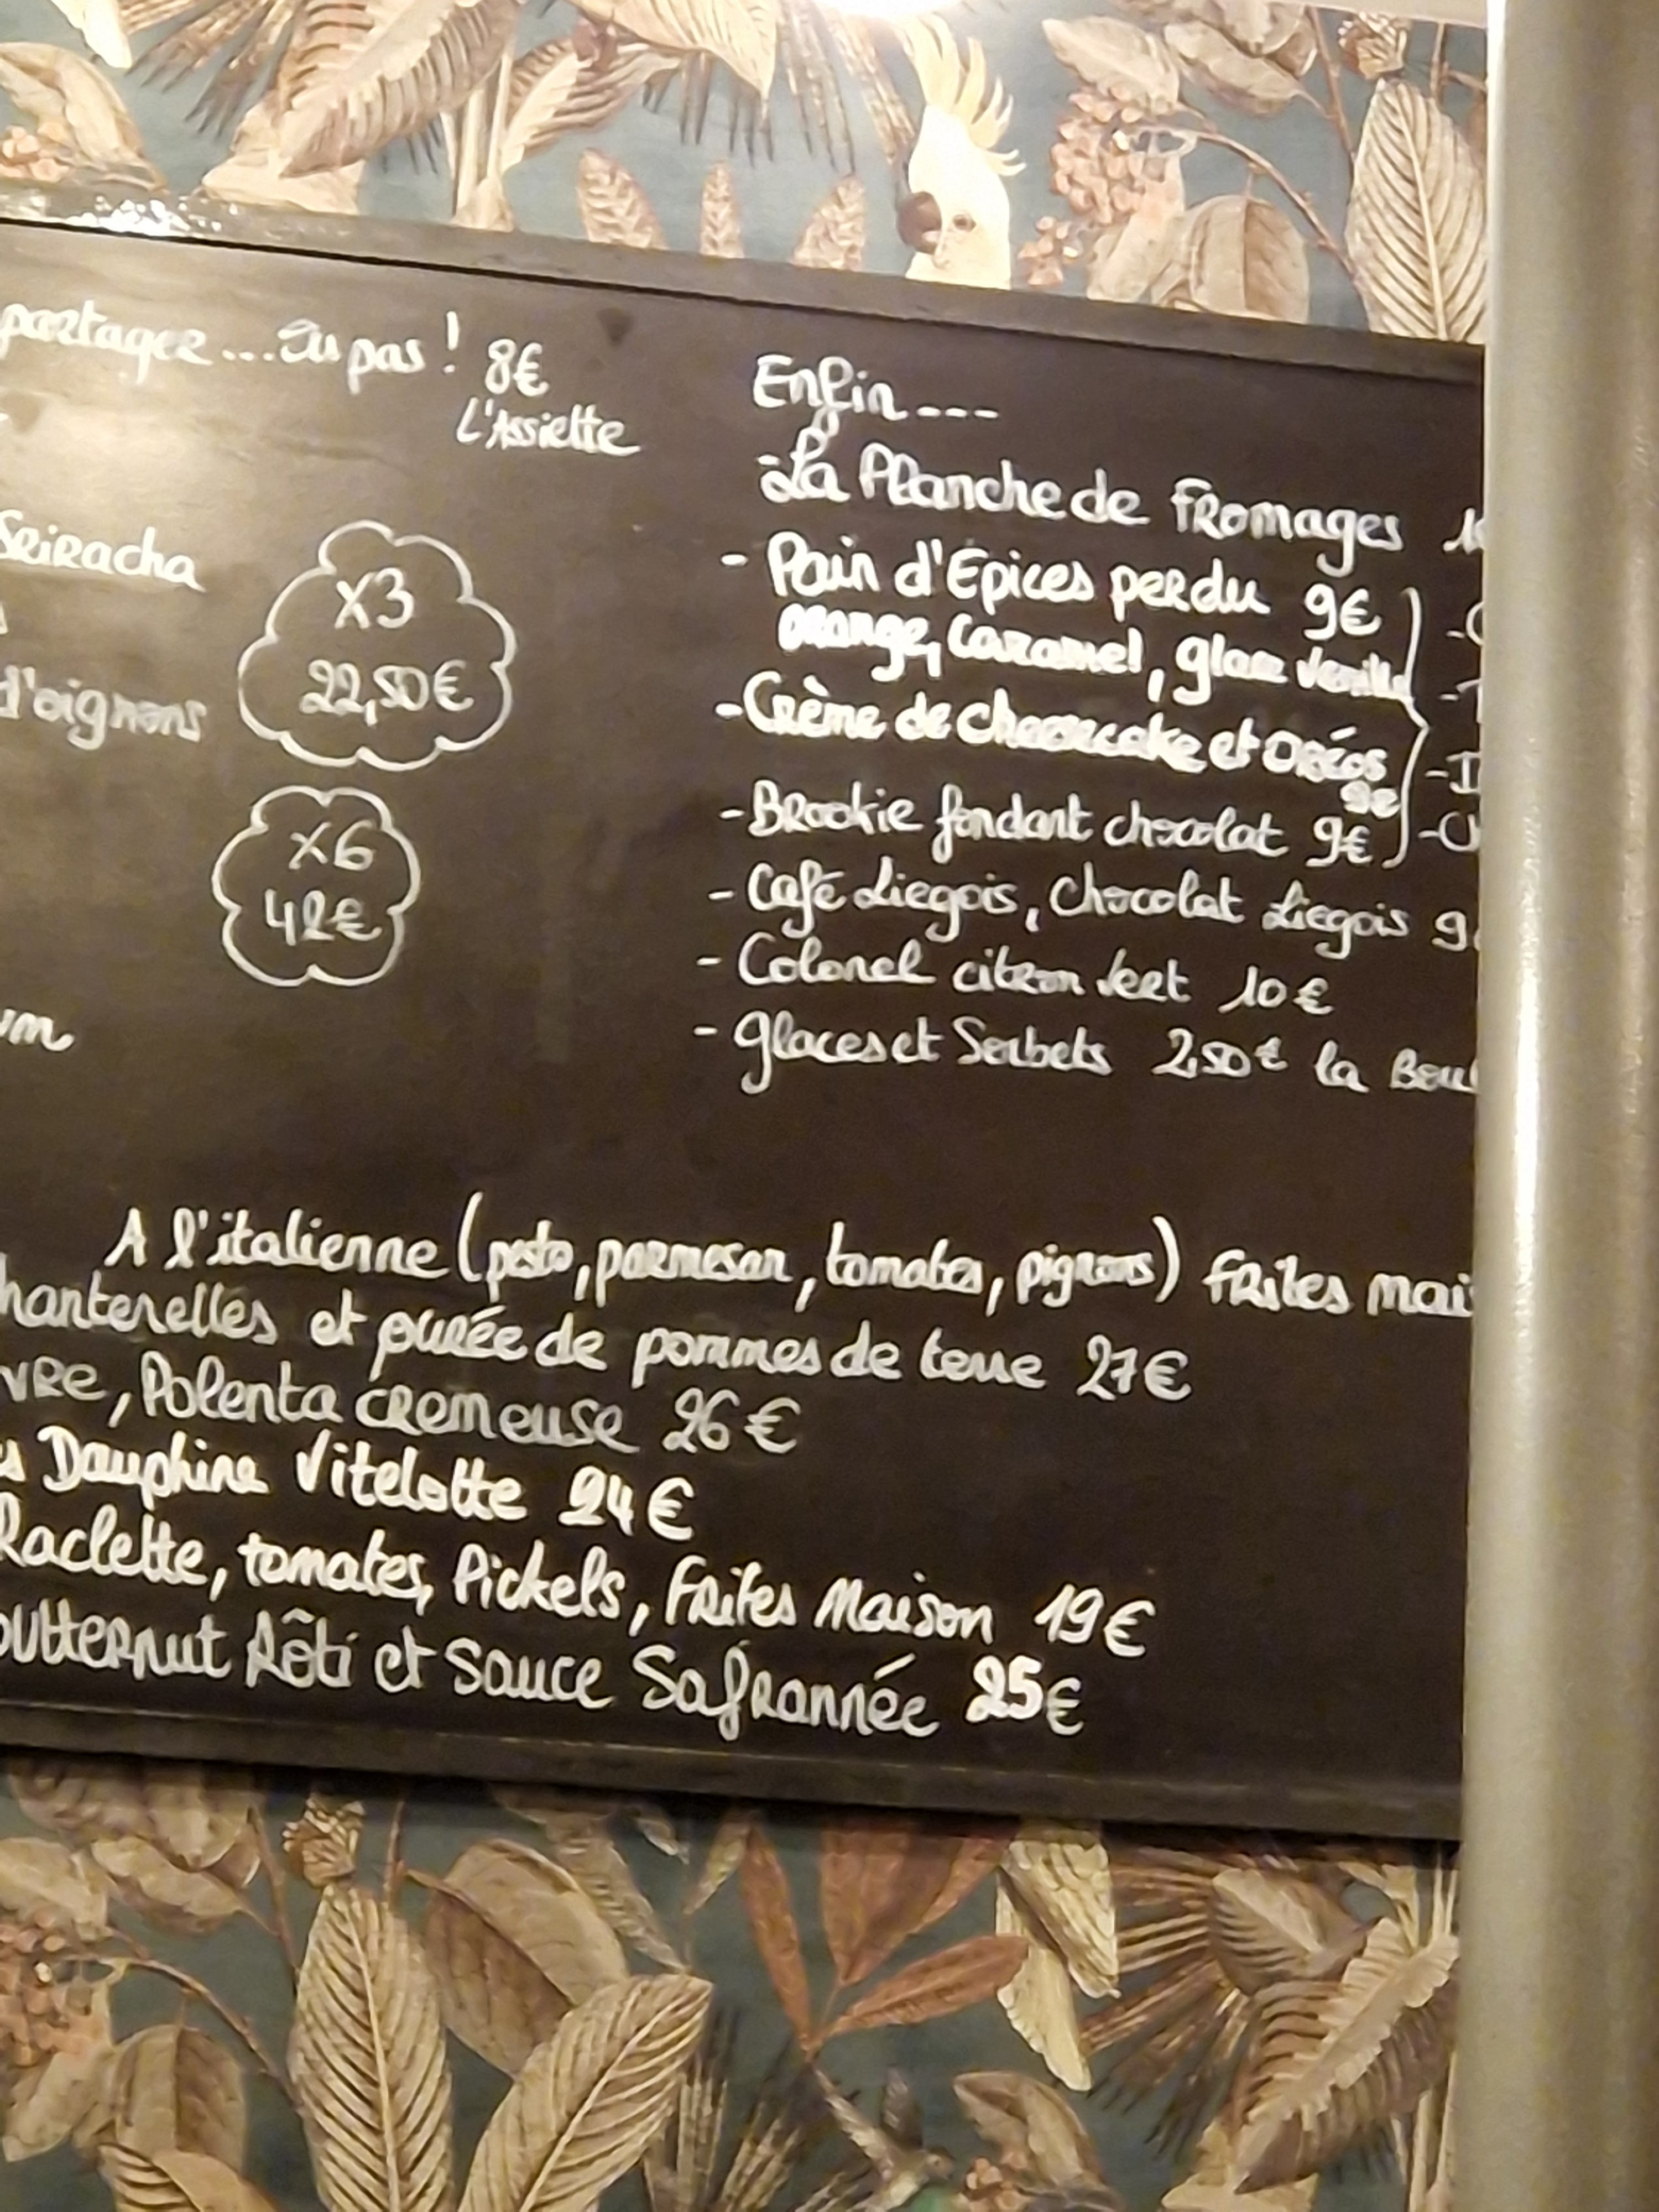 partager...ou pas ! 8€
L'Assiette
Sriracha
d'oignons
X3
22,50€
X6
42€
Enfin----
-La Planche de Fromages
- Pain d'Epices perdu 9€
orange, Caramel, glace vanille
-Crème de cheesecake et Oréos
9€
-Brookie fondant chocolat 9€
- Café Liegois, Chocolat Liegois 9
- Colonel citron vert 10€
- Glaces et Sorbets 2,50€ la Boul
A l'italienne (pesto, parmesan, tomates, pignons) Frites mai
hanterelles et purée de pommes de terre 27€
vre, Polenta cremeuse 26€
s Dauphine Vitelotte 24€
Raclette, tomates, Pickels, Frites Maison 19€
outternut Rôti et Sauce Safrannée 25€